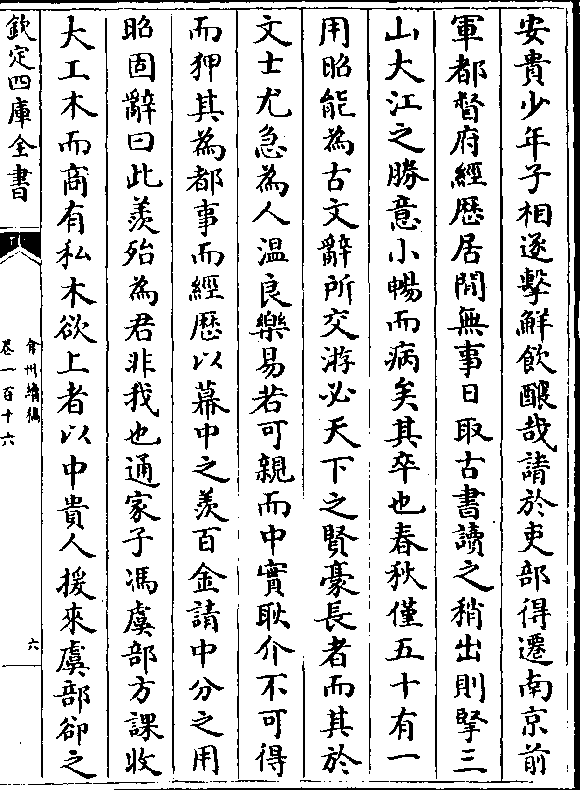 安貴少年子相逐擊鮮飲釀哉請於吏部得遷南京前
軍都督府經歷居閒無事日取古書讀之稍出則擥三
山大江之勝意小暢而病矣其卒也春秋僅五十有一
用昭能為古文辭所交游必天下之賢豪長者而其於
文士尤急為人溫良樂易若可親而中實耿介不可得
而狎其為都事而經歷以幕中之羨百金請中分之用
昭固辭曰此羨殆為君非我也通家子馮虞部方課收
大工木而商有私木欲上者以中貴人援來虞部卻之
欽定四庫全書
弇州續稿
卷一百十六
六